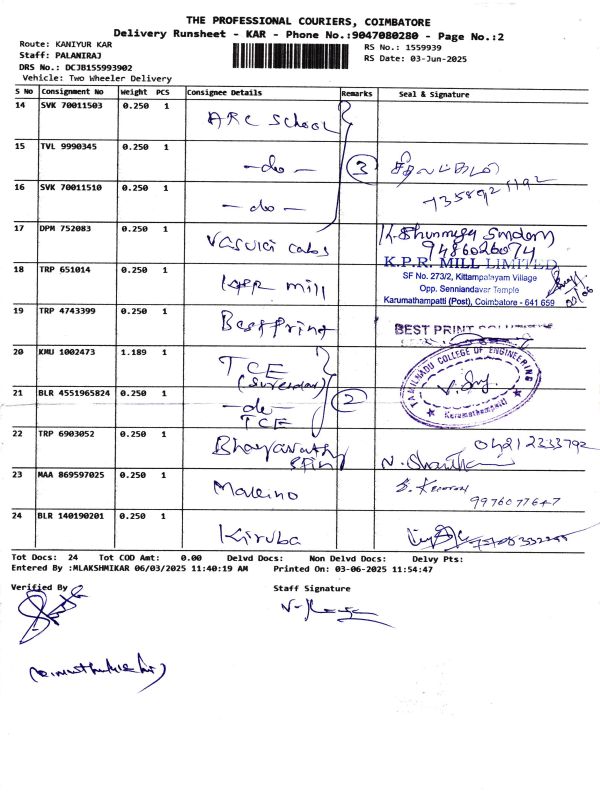 THE PROFESSIONAL COURIERS, COIMBATORE
Delivery Runsheet - KAR - Phone No.:9047080280 - Page No.:2
Route: KANIYUR KAR
RS No.: 1559939
Staff: PALANIRAJ
RS Date: 03-Jun-2025
DRS No.: DCJB155993902
Vehicle: Two Wheeler Delivery
S No Consignment No Weight PCS Consignee Details Remarks Seal & Signature
14 SVK 70011503 0.250 1 ARC School
15 TVL 9990345 0.250 1 -do- 3
16 SVK 70011510 0.250 1 -do-
17 DPM 752083 0.250 1 Vasuki cabs
9486026074
18 TRP 651014 0.250 1 KPR mill K.P.R. MILL LIMITED
SF No. 273/2, Kittampalayam Village
Opp. Senniandavar Temple
Karumathampatti (Post), Coimbatore - 641 659
19 TRP 4743399 0.250 1 Bestprint BEST PRINT
20 KMU 1002473 1.189 1 TCE
TAMILNADU COLLEGE OF ENGINEERING
Karumathampatti
21 BLR 4551965824 0.250 1 -do- 2
TCE
22 TRP 6903052 0.250 1 0421 2333792
23 MAA 869597025 0.250 1
9976077647
24 BLR 140190201 0.250 1 Kiruba
Tot Docs: 24 Tot COD Amt: 0.00 Delvd Docs: Non Delvd Docs: Delvy Pts:
Entered By :MLAKSHMIKAR 06/03/2025 11:40:19 AM Printed On: 03-06-2025 11:54:47
Verified By Staff Signature